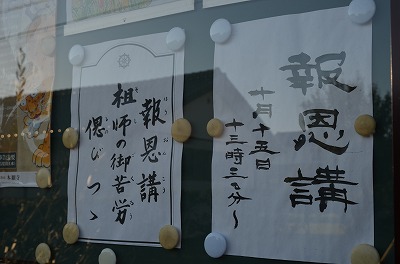 報恩講
十月十五日
十三時三〇分～
報恩講
祖師の御苦労
偲びつゝ